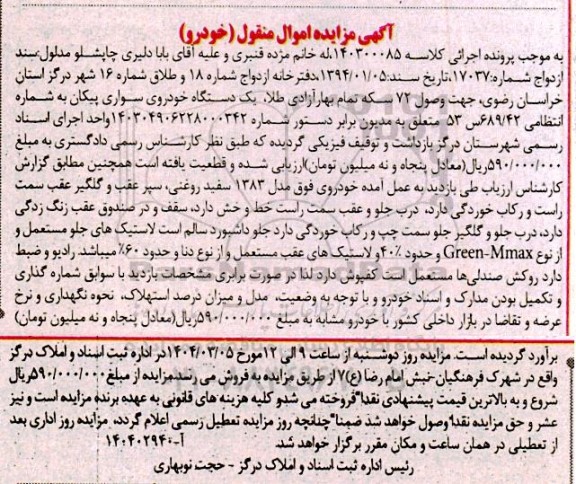 آگهی مزایده اموال منقول (خودرو)
به موجب پرونده اجرائی کلاسه ۱۴۰۳۰۰۰۸۵،له خانم مژده قنبری و علیه آقای بابا دلیری چاپشلو مدلول:سند
ازدواج شماره:۱۷۰۳۷،تاریخ سند:۱۳۹۴/۰۱/۰۵،دفترخانه ازدواج شماره ۱۸ و طلاق شماره ۱۶ شهر درگز استان
خراسان رضوی، جهت وصول ۷۲ سکه تمام بهار آزادی طلا، یک دستگاه خودروی سواری پیکان به شماره
انتظامی ۶۸۹/۴۲س ۵۳ متعلق به مدیون برابر دستور شماره ۱۴۰۳۰۴۹۰۶۲۲۸۰۰۰۳۴۲واحد اجرای اسناد
رسمی شهرستان درگز بازداشت و توقیف فیزیکی گردیده که طبق نظر کارشناس رسمی دادگستری به مبلغ
۵۹۰/۰۰۰/۰۰۰ریال(معادل پنجاه و نه میلیون تومان)ارزیابی شده و قطعیت یافته است همچنین مطابق گزارش
کارشناس ارزیاب طی بازدید به عمل آمده خودروی فوق مدل ۱۳۸۳ سفید روغنی، سپر عقب و گلگیر عقب سمت
راست و رکاب خوردگی دارد، درب جلو و عقب سمت راست خط و خش دارد، سقف و در صندوق عقب زنگ زدگی
دارد، درب جلو و گلگیر جلو سمت چپ و رکاب خوردگی دارد جلو داشبورد سالم است لاستیک های جلو مستعمل و
از نوع Green-Mmax و حدود ۴۰٪و لاستیک های عقب مستعمل و از نوع دنا و حدود ۶۰٪ میباشد رادیو و ضبط
دارد روکش صندلی‌ها مستعمل است کفپوش دارد لذا در صورت برابری مشخصات بازدید با سوابق شماره گذاری
و تکمیل بودن مدارک و اسناد خودرو و با توجه به وضعیت، مدل و میزان درصد استهلاک، نحوه نگهداری و نرخ
عرضه و تقاضا در بازار داخلی کشور با خودرو مشابه به مبلغ ۵۹۰/۰۰۰/۰۰۰ریال(معادل پنجاه و نه میلیون تومان)
برآورد گردیده است. مزایده روز دوشنبه از ساعت ۹ الی ۱۲مورخ ۱۴۰۴/۰۳/۰۵در اداره ثبت اسناد و املاک درگز
واقع در شهرک فرهنگیان-نبش امام رضا (ع)۷ از طریق مزایده به فروش می رسد.مزایده از مبلغ ۵۹۰/۰۰۰/۰۰۰ریال
شروع و به بالاترین قیمت پیشنهادی نقدا"فروخته می شدو کلیه هزینه های قانونی به عهده برنده مزایده است و نیز
عشر و حق مزایده نقدا"وصول خواهد شد ضمنا"چنانچه روز مزایده تعطیل رسمی اعلام گردد، مزایده روز اداری بعد
از تعطیلی در همان ساعت و مکان مقرر برگزار خواهد شد. آ-۱۴۰۴۰۲۹۴۰
رئیس اداره ثبت اسناد و املاک درگز - حجت نوبهاری